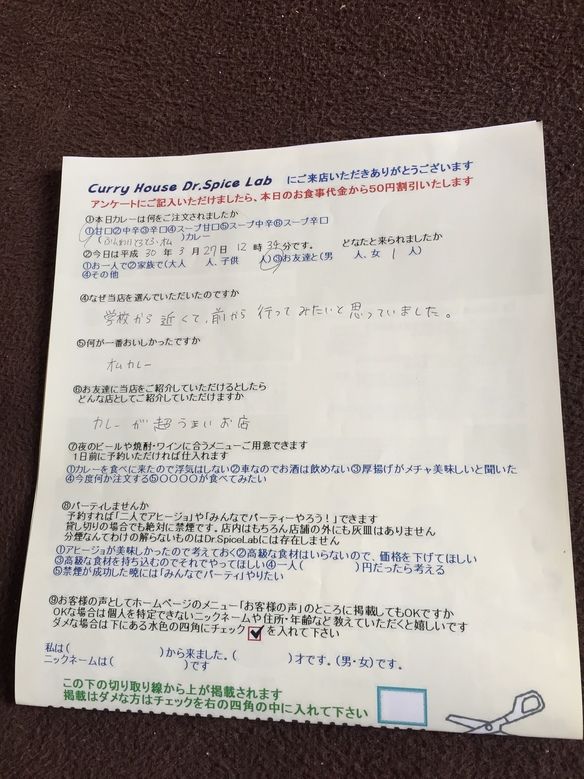 Curry House Dr.Spice Lab にご来店いただきありがとうございます
アンケートにご記入いただけましたら、本日のお食事代金から50円割引いたします
①本日カレーは何をご注文されましたか
①甘口②中辛③辛口④スープ甘口⑤スープ中辛⑥スープ辛口
(ふんわりとろとろ・オム)カレー
②今日は平成 30 年 3 月 27 日 12 時 34 分です。 どなたと来られましたか
①お一人で②家族で(大人 人、子供 人)③お友達と(男 人、女 1 人)
④その他
④なぜ当店を選んでいただいたのですか
学校から近くて、前から行ってみたいと思っていました。
⑤何が一番おいしかったですか
オムカレー
⑥お友達に当店をご紹介していただけるとしたら
どんな店としてご紹介していただけますか
カレーが超うまいお店
⑦夜のビールや焼酎・ワインに合うメニューご用意できます
1日前に予約いただければ仕入れます
①カレーを食べに来たので浮気はしない②車なのでお酒は飲めない③厚揚げがメチャ美味しいと聞いた
④今度何か注文する⑤〇〇〇〇が食べてみたい
⑧パーティしませんか
予約すれば「二人でアヒージョ」や「みんなでパーティーやろう!」できます
貸し切りの場合でも絶対に禁煙です。店内はもちろん店舗の外にも灰皿はありません
分煙なんてわけの解らないものはDr.SpiceLabには存在しません
①アヒージョが美味しかったので考えておく②高級な食材はいらないので、価格を下げてほしい
③高級な食材を持ち込むのでそれでやってほしい④一人( )円だったら考える
⑤禁煙が成功した暁には「みんなでパーティ」やりたい
⑨お客様の声としてホームページのメニュー「お客様の声」のところに掲載してもOKですか
OKな場合は個人を特定できないニックネームや住所・年齢など教えていただくと嬉しいです
ダメな場合は下にある水色の四角にチェック☑を入れて下さい
私は( )から来ました。( )才です。(男・女)です。
ニックネームは( )です
この下の切り取り線から上が掲載されます
掲載はダメな方はチェックを右の四角の中に入れて下さい